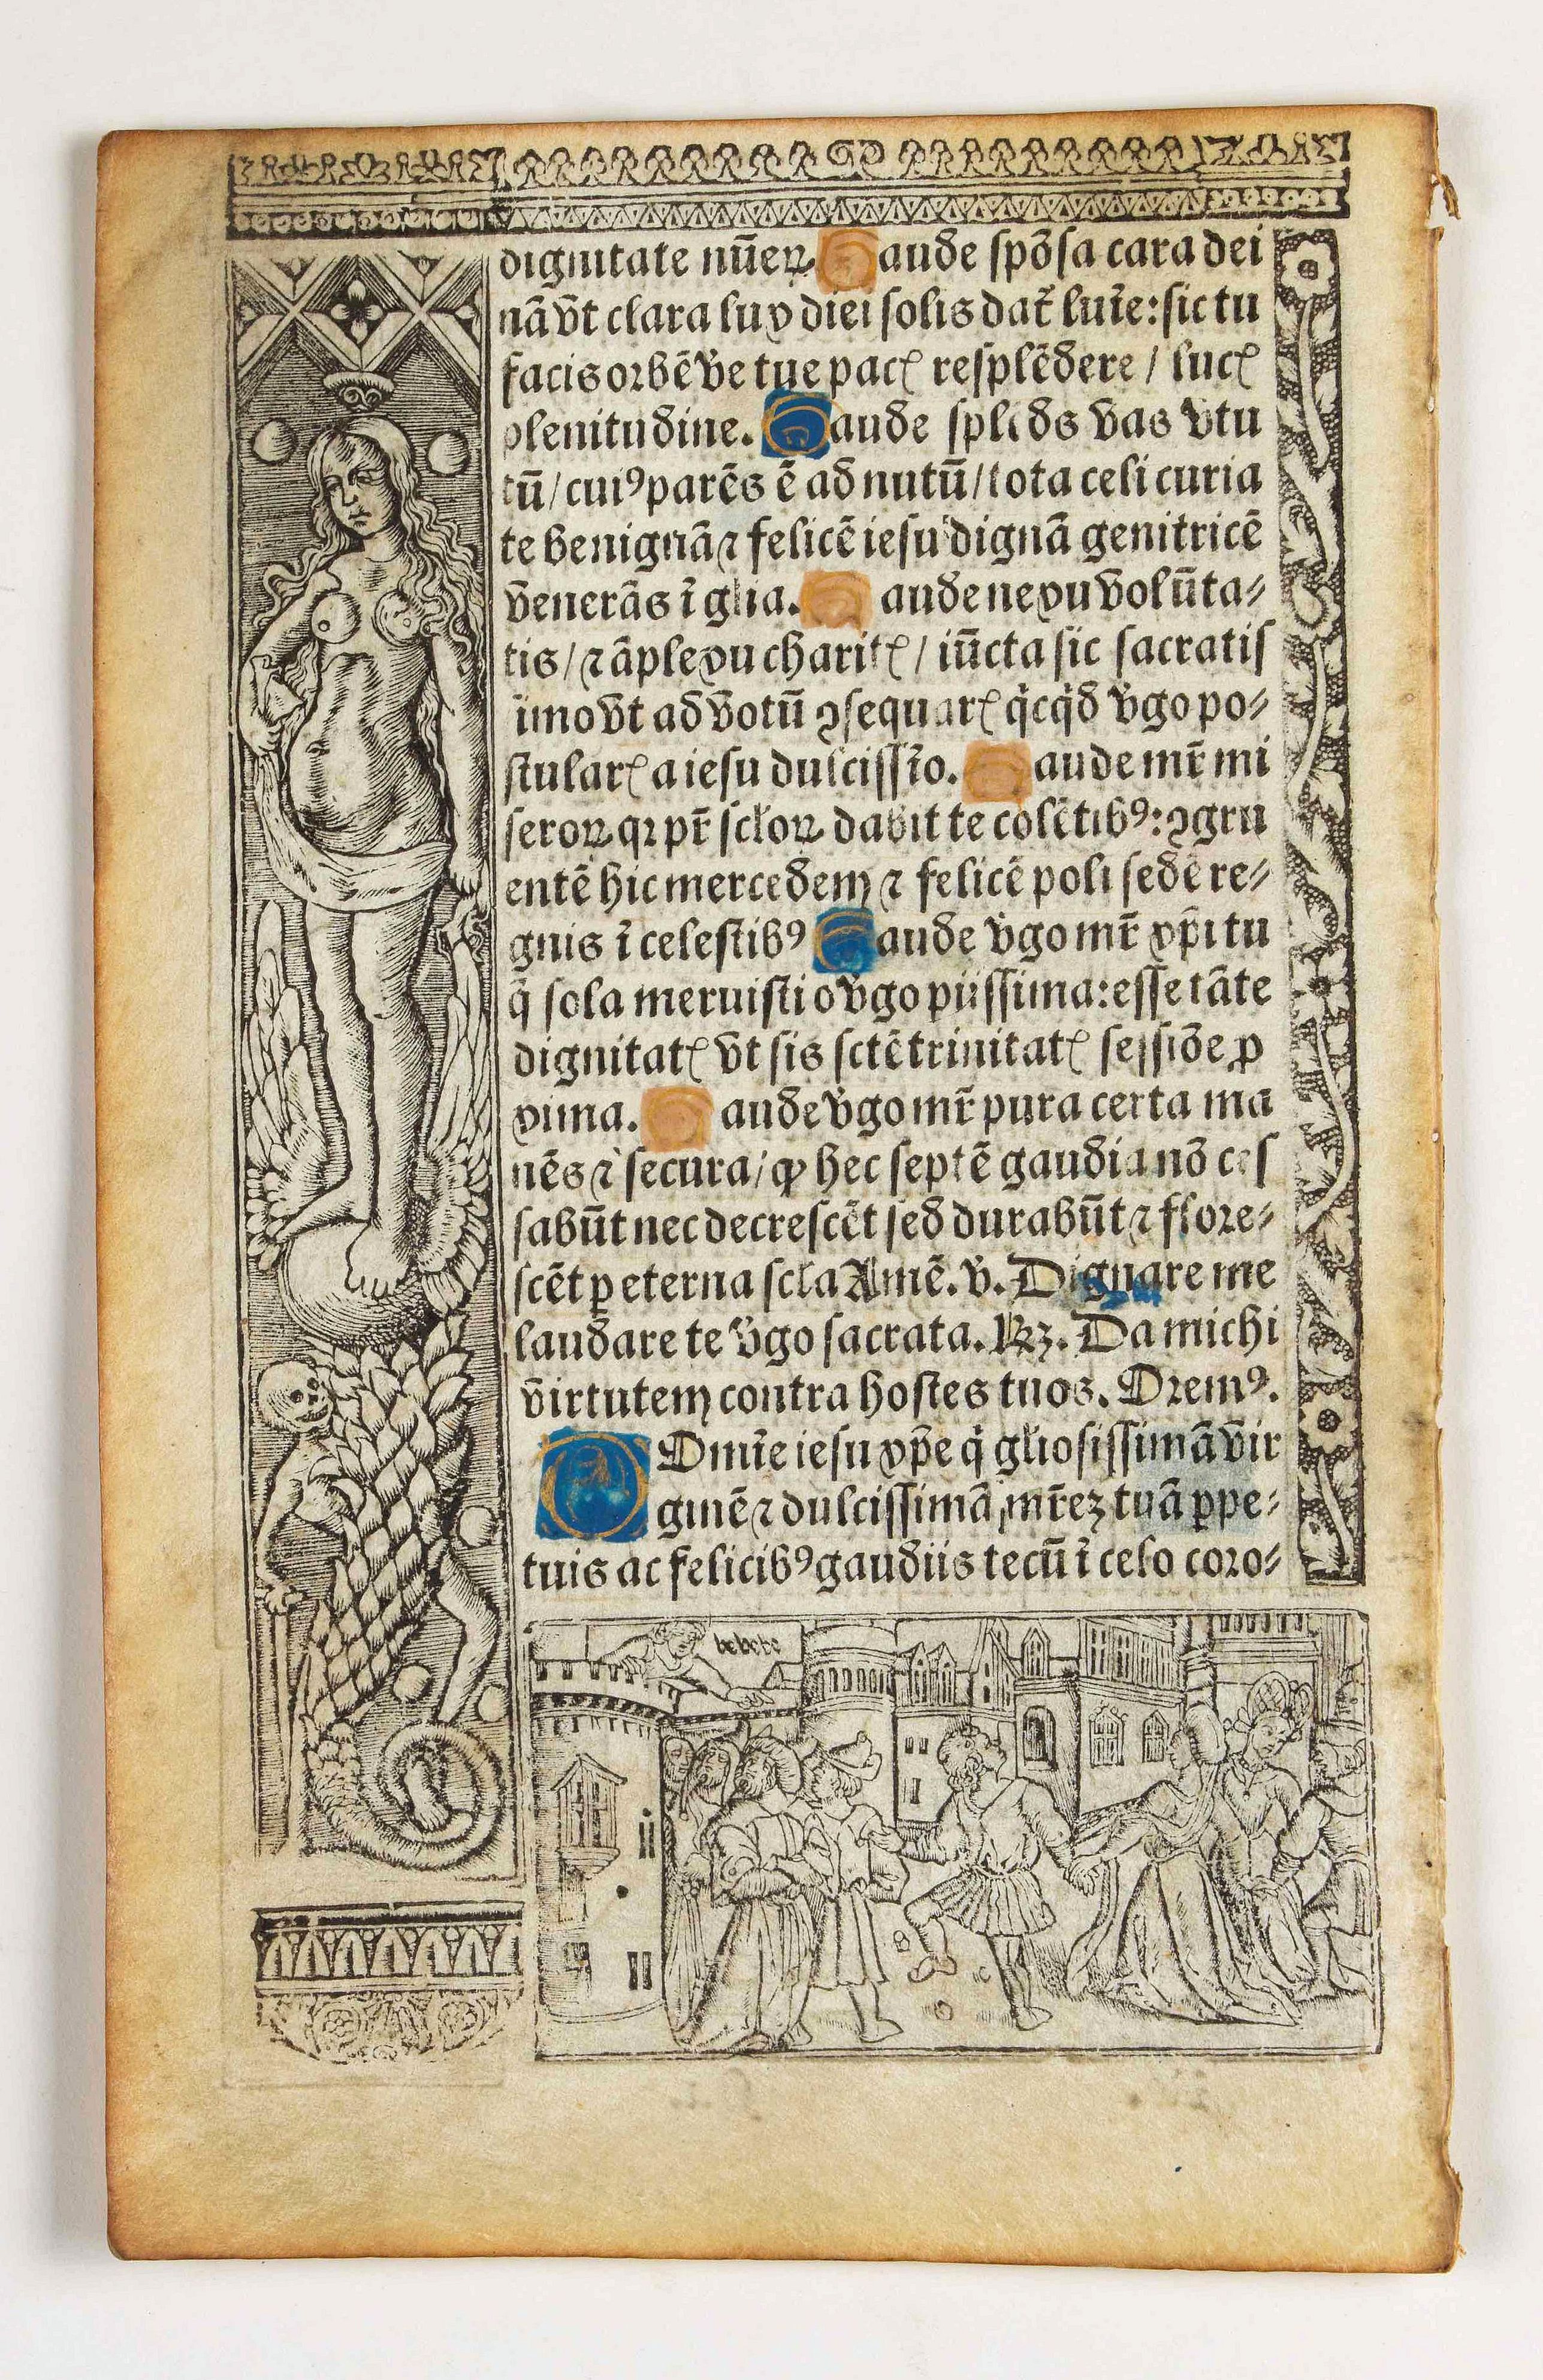 dignitate nūeꝝ Gaude spōsa cara dei
nā v̄t clara lux diei solis dat̄ lui̅e: sic tu
facis orbē ve tue pacꝭ resplēdere / lucꝭ
plenitudine. Gaude splēds vas v̄tu
tū / cuiꝰ parēs ē ad nutū / tota celi curia
te benignā ⁊ felicē iesu dignā genitricē
venerās ī glia. Gaude nexu volūta⸗
tis / ⁊ āplexu charitꝭ / iūcta sic sacratis
imo v̄t ad votū ꝯsequarꝭ q̇cq̇d v̄go po⸗
stularꝭ a iesu dulcissīo. Gaude mr̄ mi
seroꝝ qꝛ pr̄ scłoꝝ dabit te colētibꝰ: ꝯgru
entē hic mercedem ⁊ felicē poli sedē re⸗
gnis ī celestibꝰ Gaude v̄go mr̄ xp̄i tu
q̄ sola meruisti o v̄go piissima: esse tāte
dignitatꝭ v̄t sis sctē trinitatꝭ sessiōe ꝓ
xima. Gaude v̄go mr̄ pura certa ma
nēs ⁊ secura / ꝙ hec septē gaudia nō ces
sabūt nec decrescēt sed durabūt ⁊ flore⸗
scēt ꝑ eterna scła Amē. v̄. Dignare me
laudare te v̄go sacrata. ꝶ. Da michi
virtutem contra hostes tuos. Oremꝰ.
DOmi̅e iesu xp̄e q̇ gliosissimā vir
ginē ⁊ dulcissimā mr̄eꝫ tuā ꝑpe⸗
tuis ac felicibꝰ gaudiis tecū ī celo coro⸗
bebebe